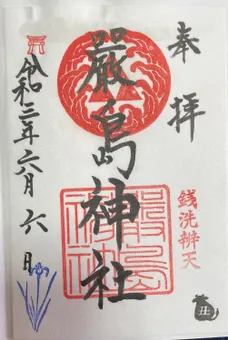 奉拝
銭洗辨天
嚴島神社
令和三年六月六日
嚴島
神社